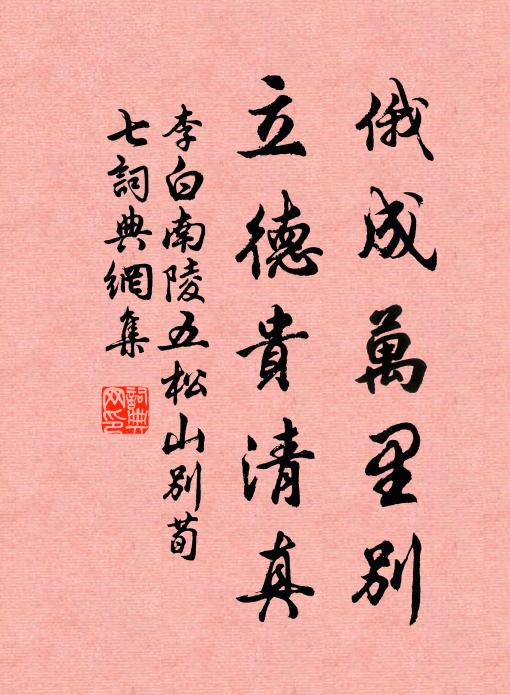 俄成萬里別
立德貴清真
李白南陵五松山別荀
七詞典網集
詞典網印